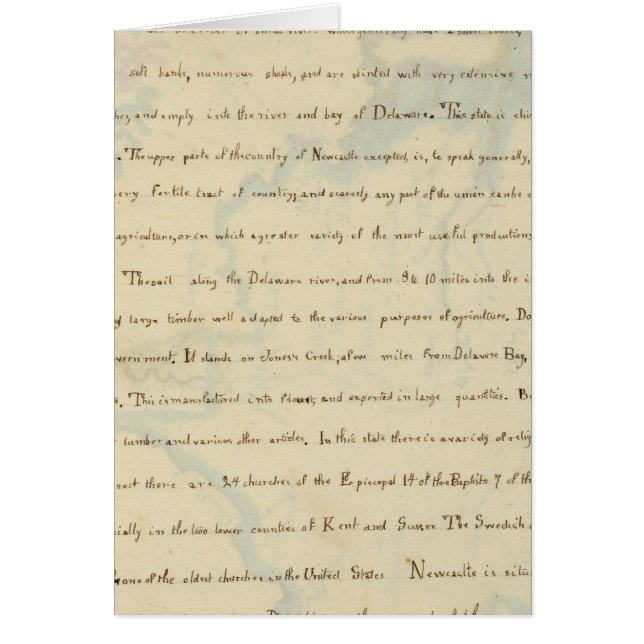 soft banks, numerous shoals, and are skirted with very extensive
and empty into the river and bay of Delaware. This state is
. The upper parts of the country of Newcastle excepted, is, to speak generally,
fertile tract of country; and scarcely any part of the union can be
agriculture, or in which a greater variety of the most useful production
The soil along the Delaware river, and from 9 to 10 miles into the
large timber well adapted to the various purposes of agriculture. Do
vernment. It stands on Jones's Creek, a few miles From Delawre Bay,
. This is manufactured into and exported in large quantities. B
lumber and various other articles. In this state there is a variety of relig
sect there are 24 churches of the Episcopal 14 of the Baptists 7 of th
cially in the two lower counties of Kent and Sussex The Swedish
one of the oldest churches in the United States Newcastle is situ